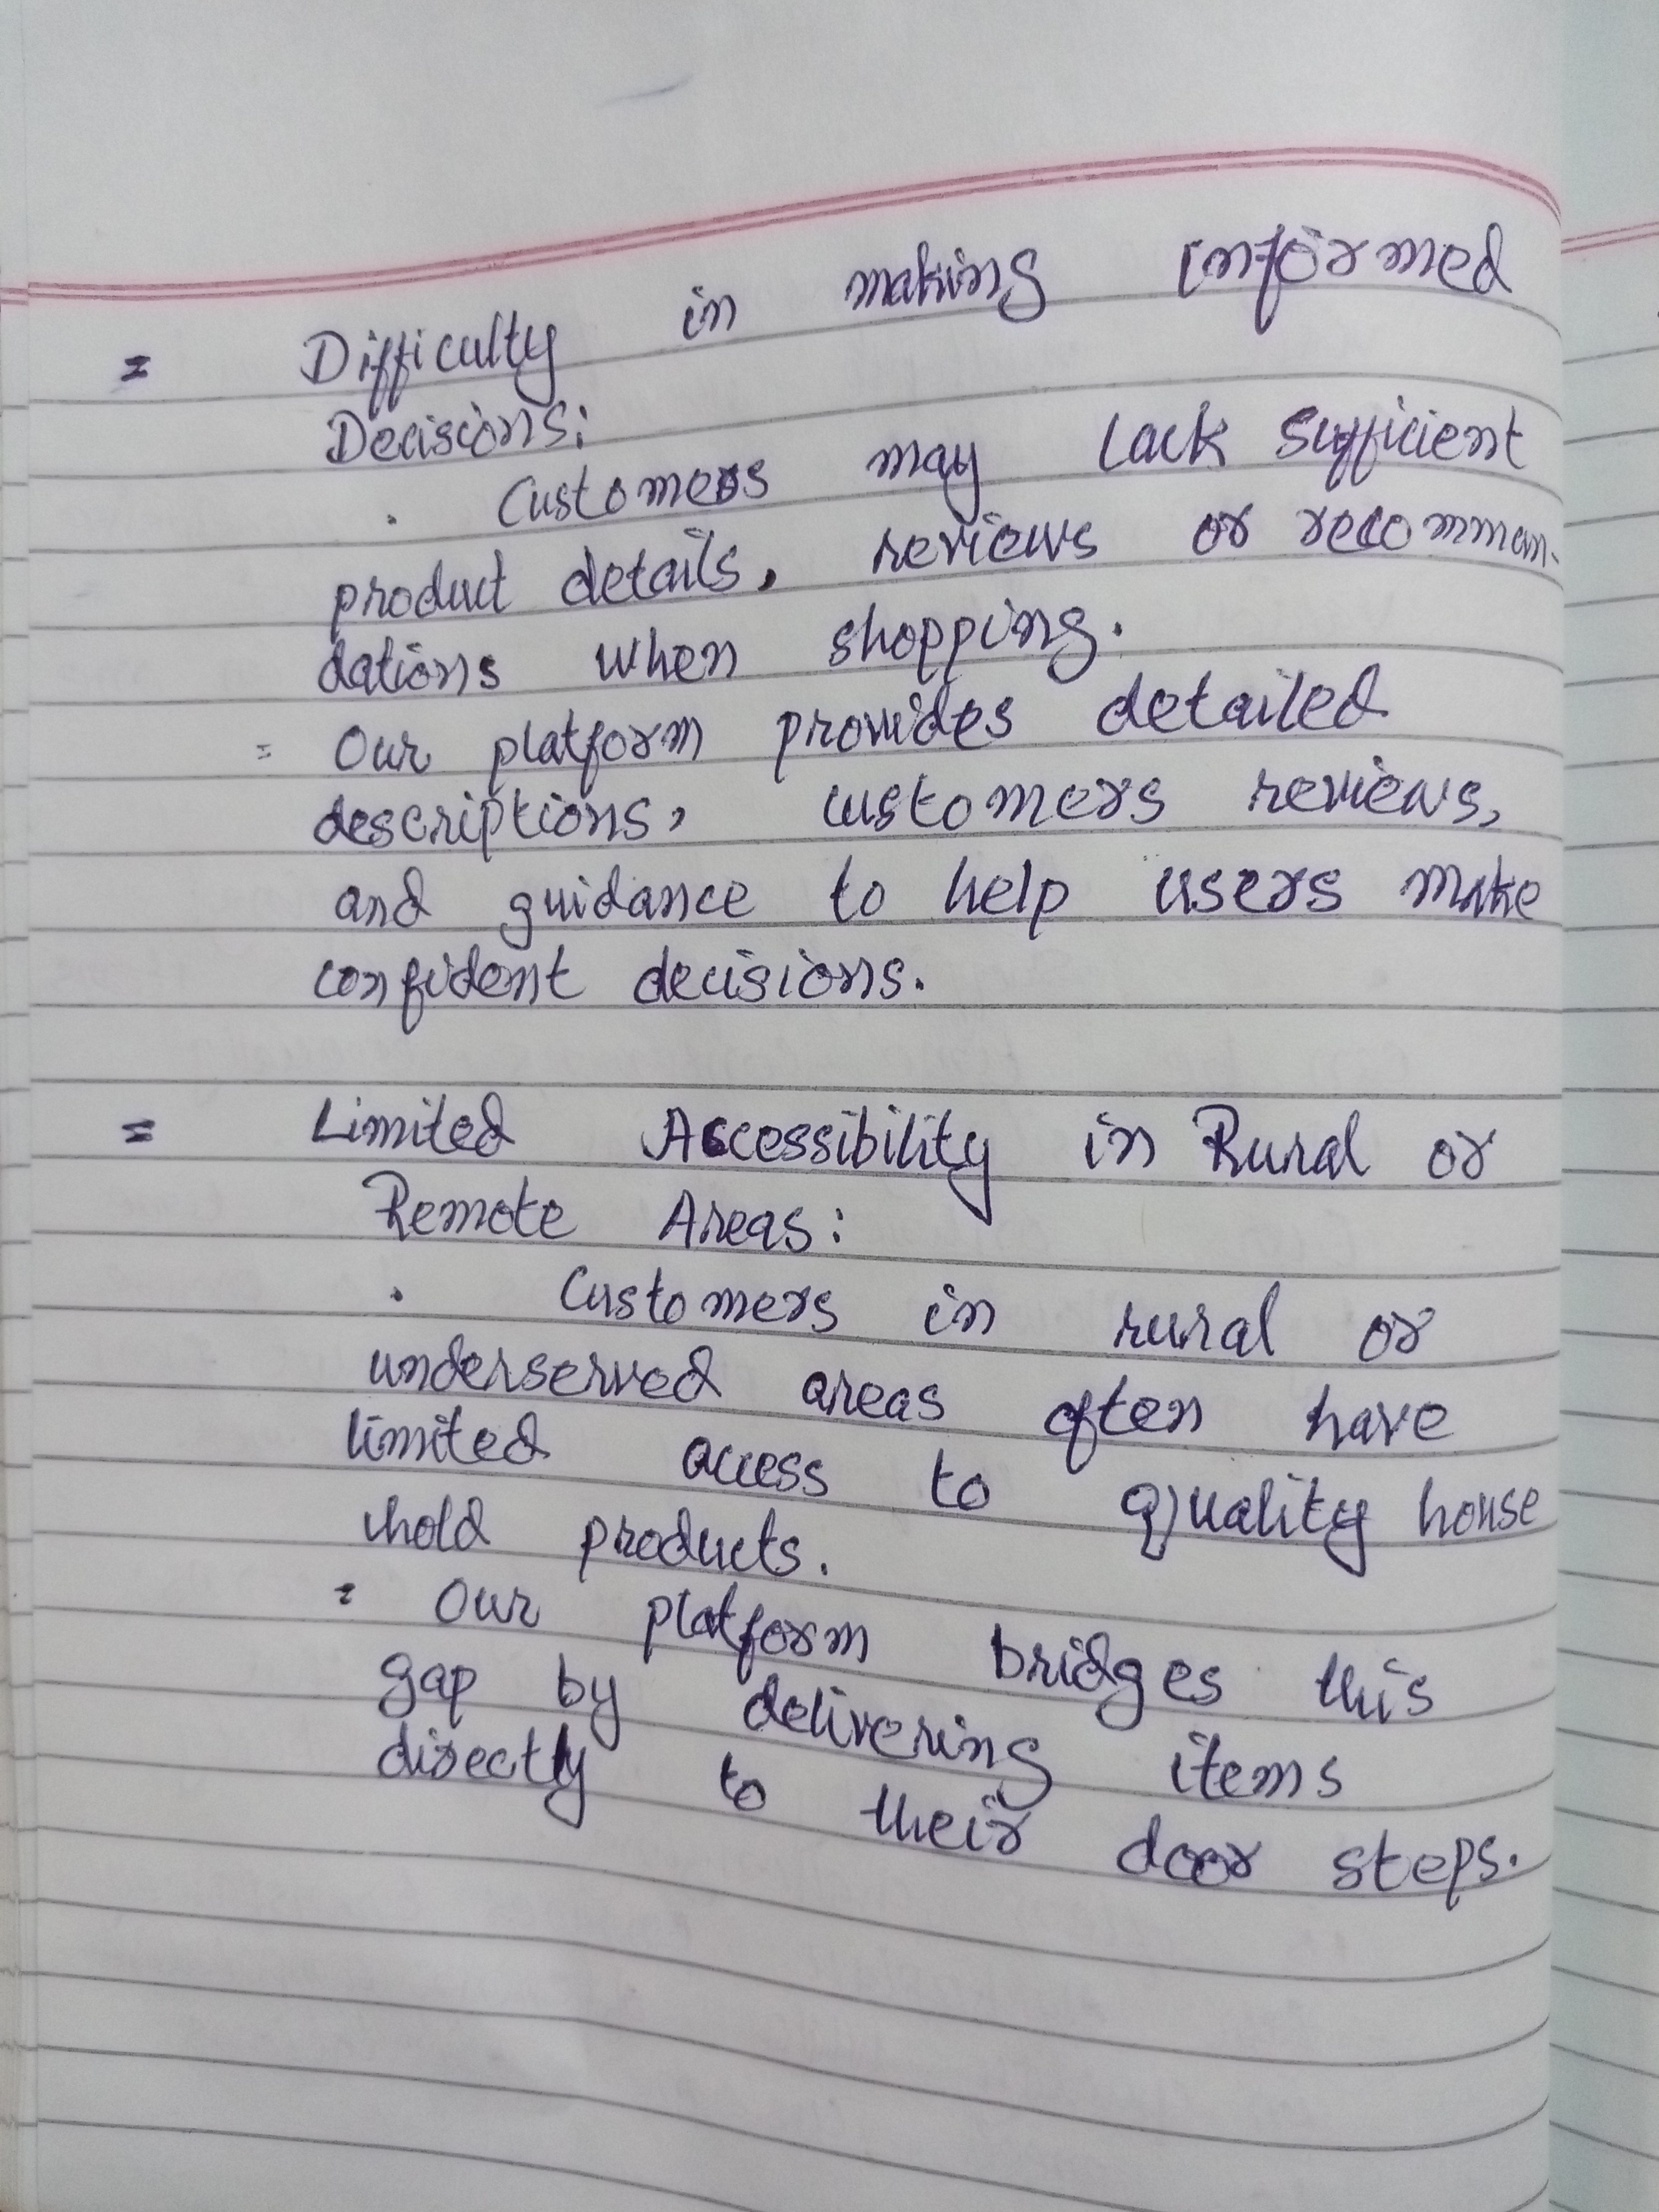 = Difficulty in making informed
Decisions:
. Customers may lack sufficient
product details, reviews or recomman-
dations when shopping.
= Our platform provides detailed
descriptions, customers reviews,
and guidance to help users make
confident decisions.
= Limited Accessibility in Rural or
Remote Areas:
. Customers in rural or
underserved areas often have
limited access to quality house
hold products.
= Our platform bridges this
gap by delivering items
directly to their door steps.